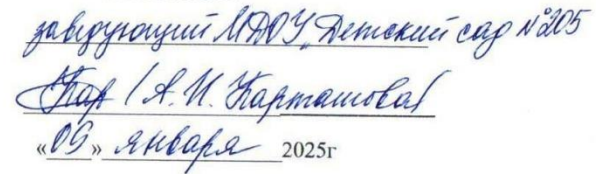 заведующий МДОУ „Детский сад №205
Кар / А. И. Карташова/
«09» января 2025г